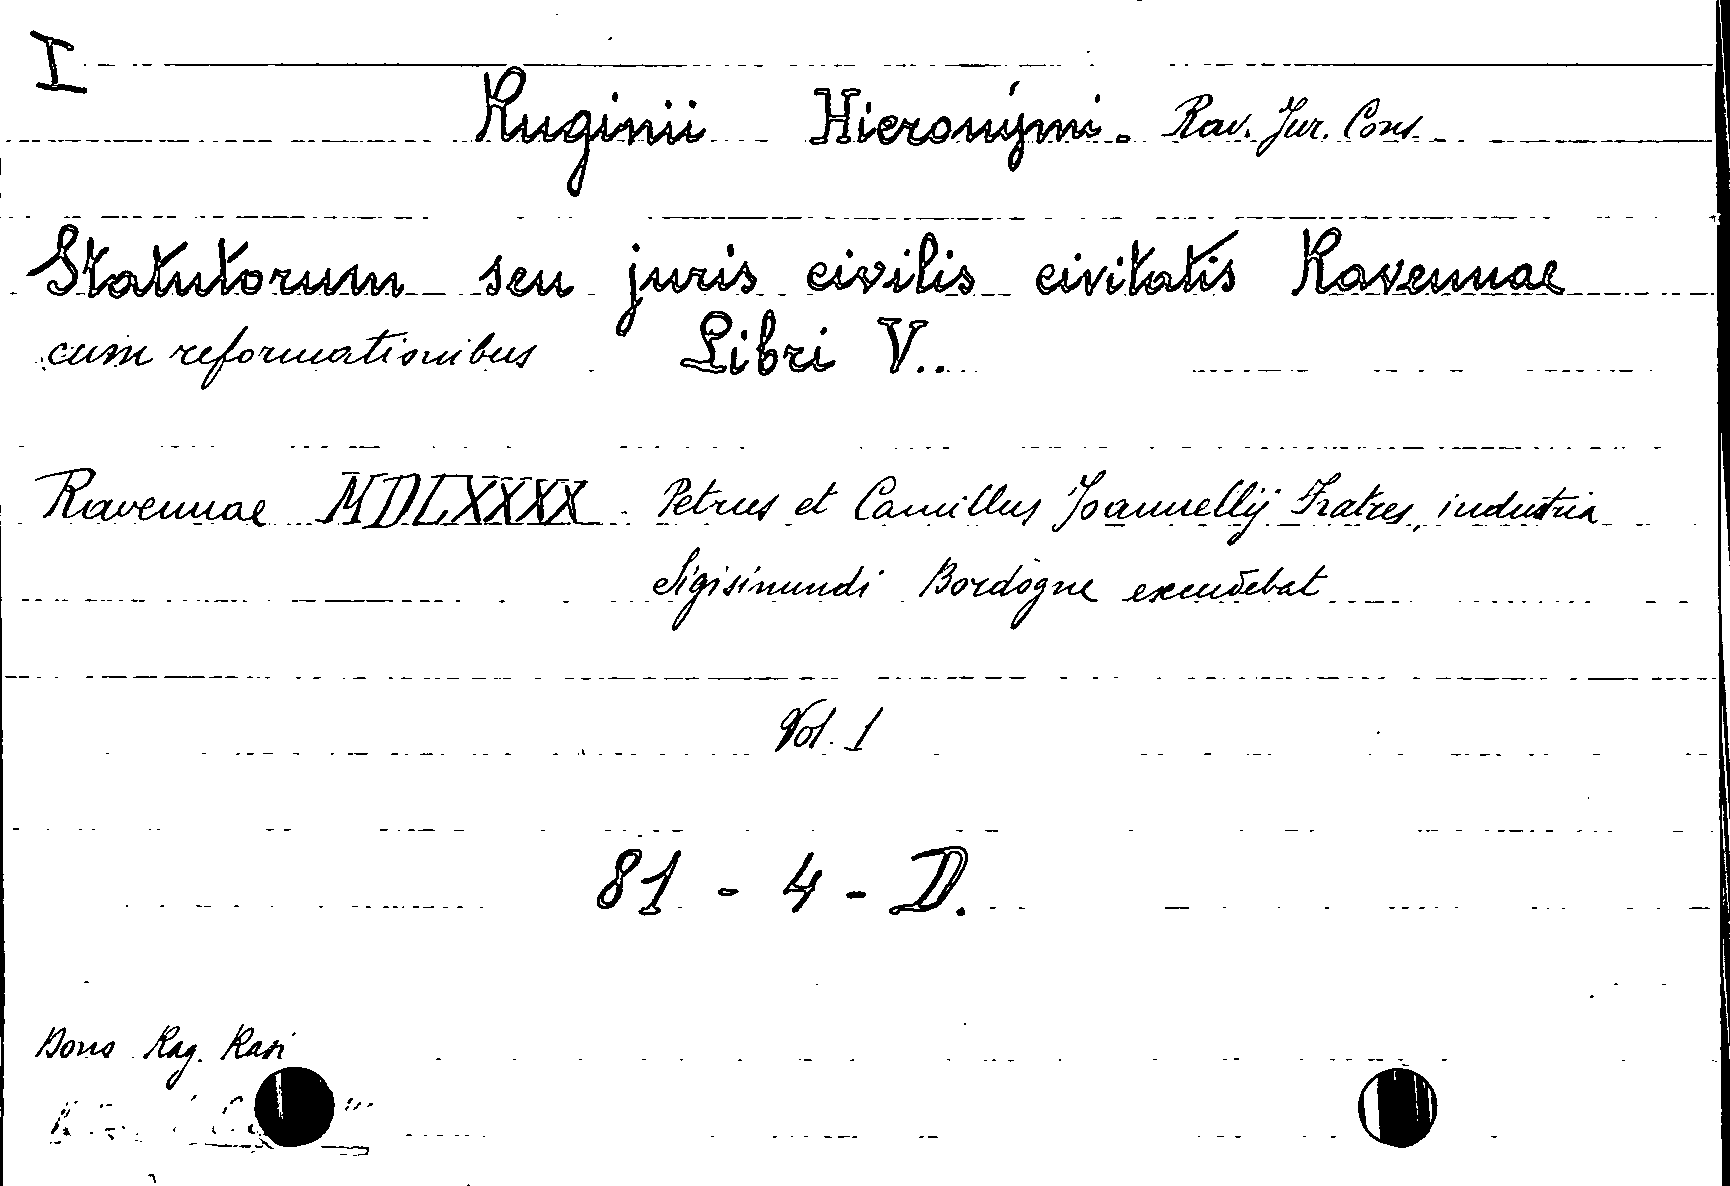 I
Ruginii Hieronymi. Rav. Jur. Cons.
Statutorum seu juris civilis civitatis Ravennae
cum reformationibus Libri V..
Ravennae MDLXXXX Petrus et Camillus Joannellij Fratres, industria
Sigisimundi Bordogne excudebat
Vol. 1
81 - 4 - D.
Dono Rag. Rasi